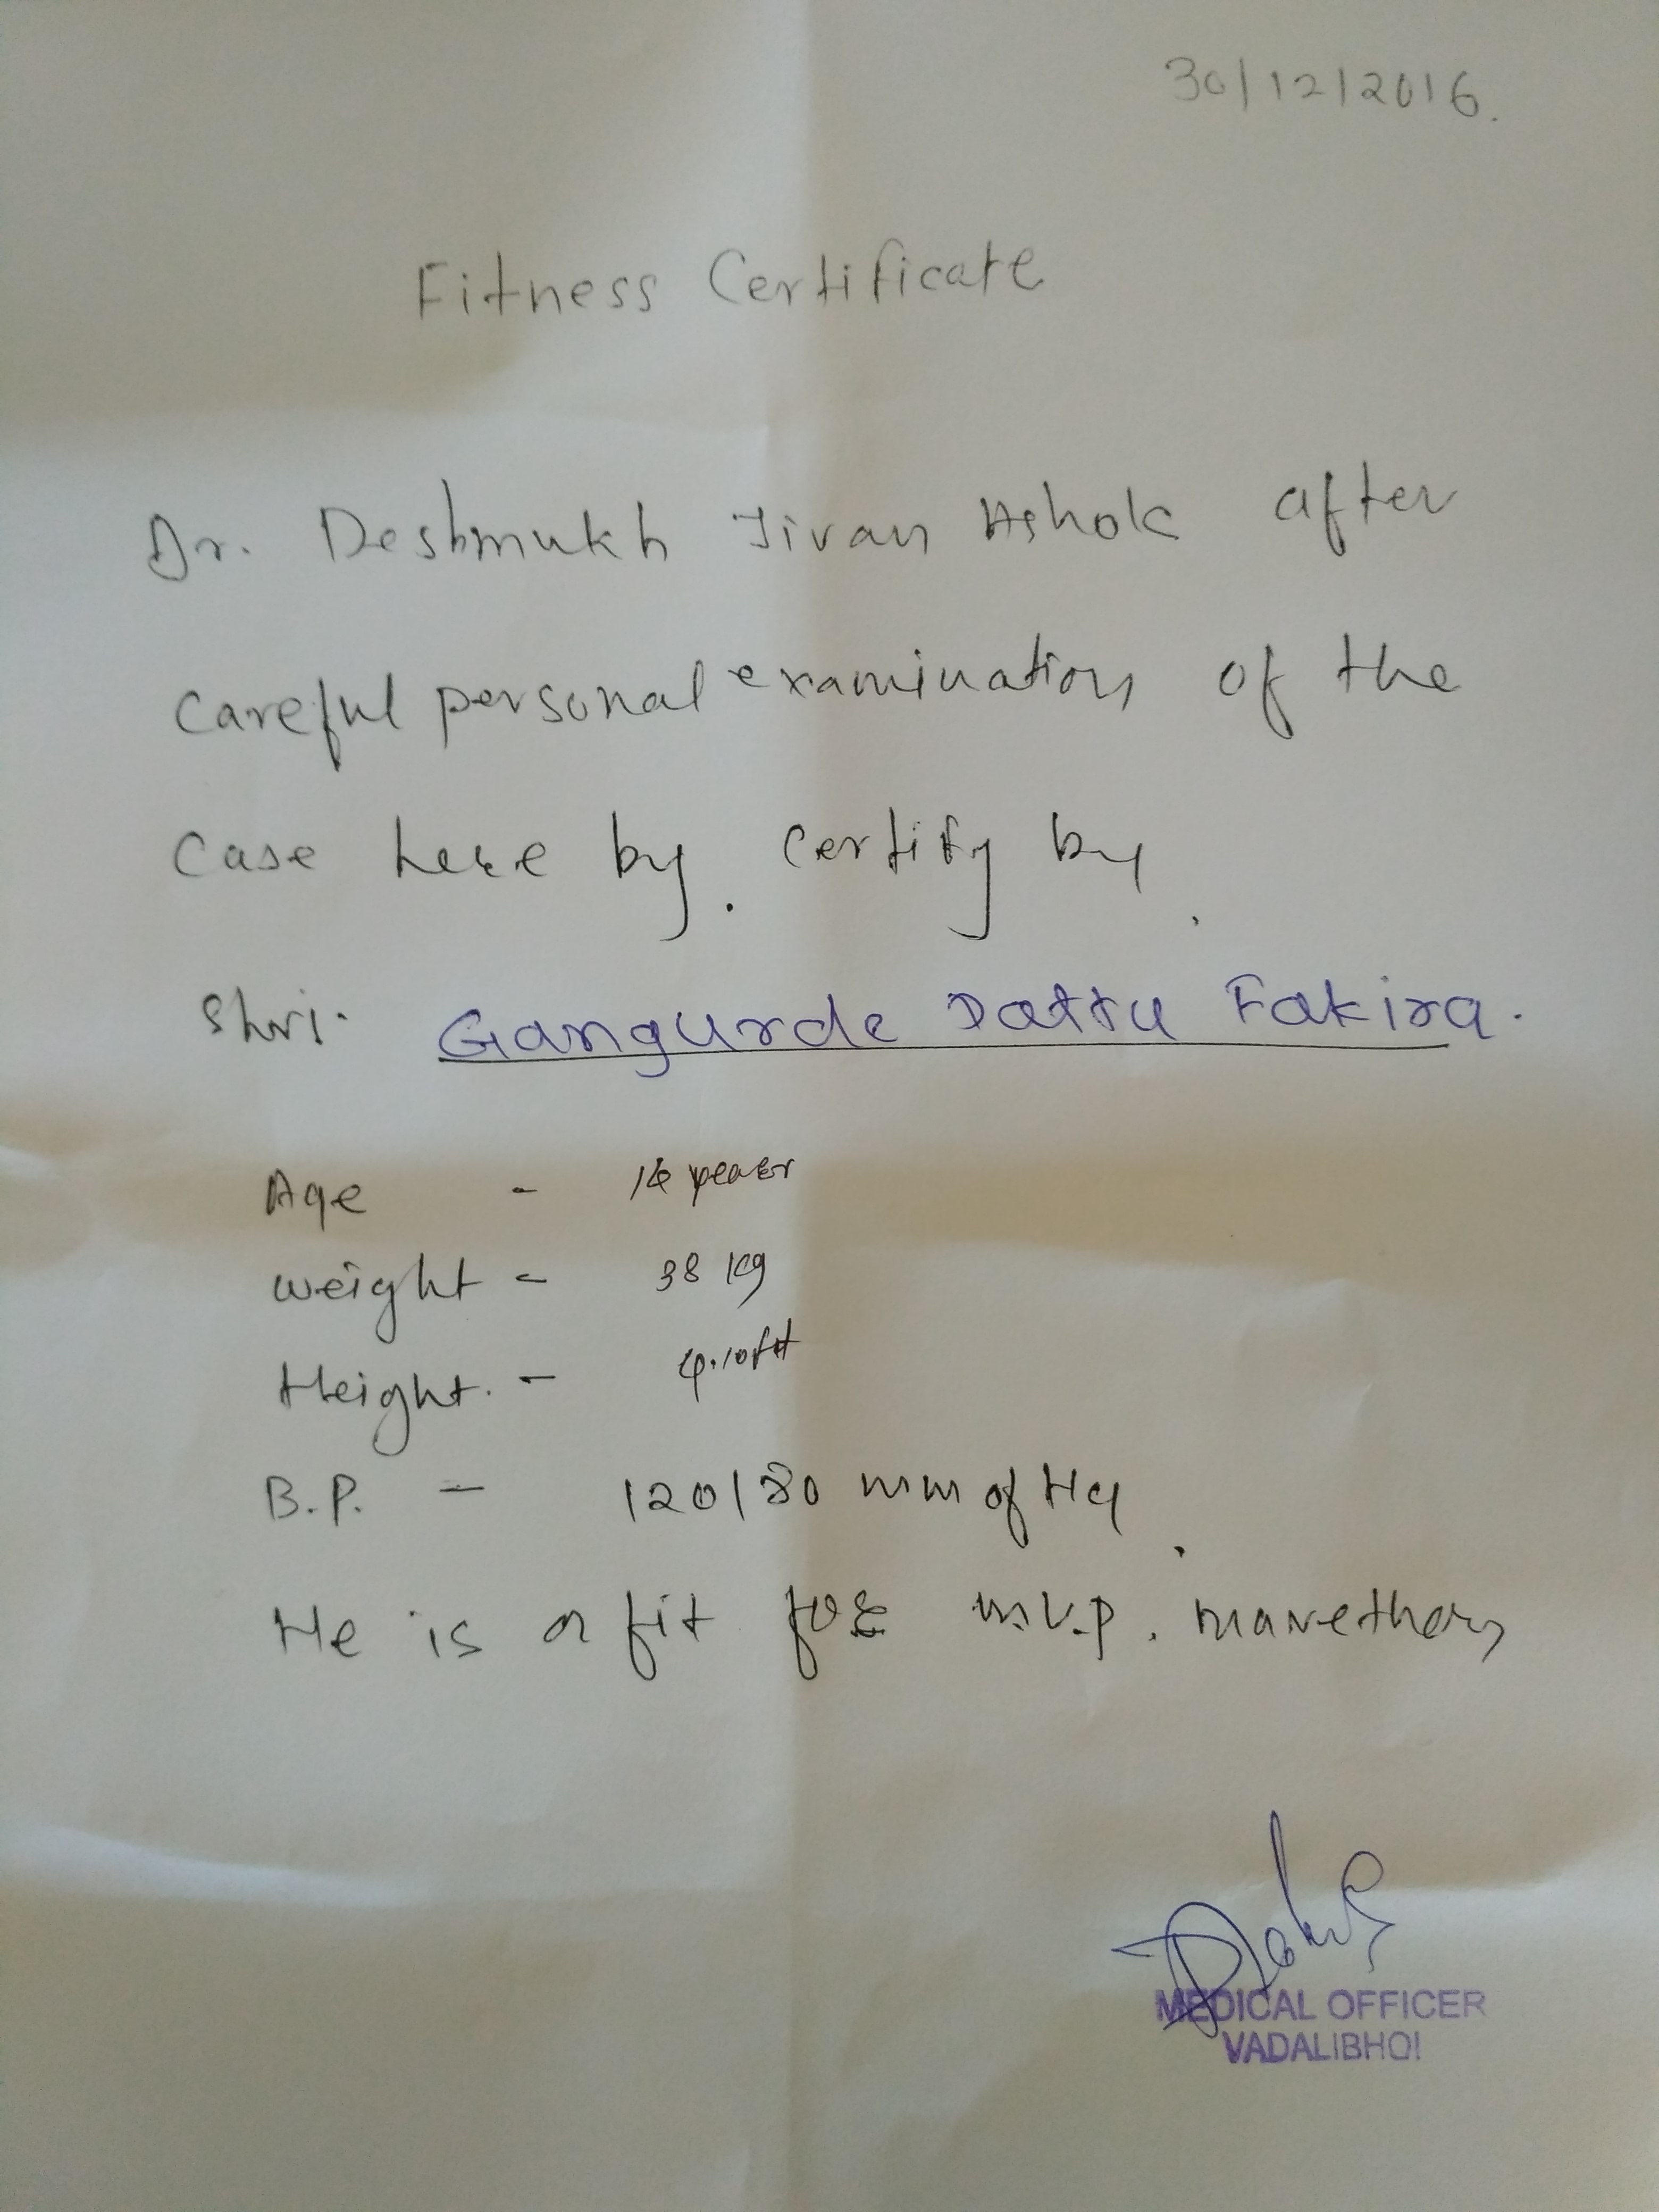 30/12/2016.
Fitness Certificate
Dr. Deshmukh Jivan Ashok after
careful personal examination of the
case here by. certify by.
Shri. Gangurde Dattu Fakira.
Age - years
weight - 38 kg
Height. - 4.10 ft
B.P. - 120/80 mm of Hg.
He is a fit for m.v.p. marethon
MEDICAL OFFICER
VADALIBHOI